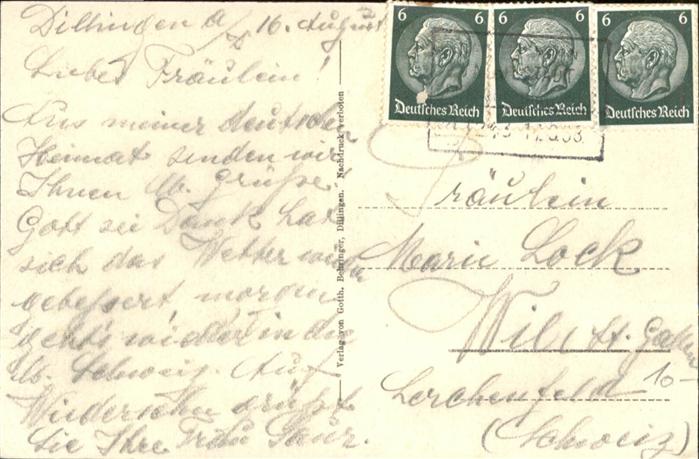 Dillingen a/ 16. August
Liebes Fräulein!
Aus meiner deutschen
Heimat senden wir
Ihnen lb. Grüße.
Gott sei Dank hat
sich das Wetter
gebessert morgen
geht's wieder in die
lb. Schweiz. Auf
Wiedersehn grüßt
Sie Ihre Frau
Verlag von Gotth. Behringer, Dillingen. Nachdruck verboten
6 6
Deutsches Reich
6 6
Deutsches Reich
6 6
Deutsches Reich
Fräulein
Marie Lock
Wil St. Gallen
Lerchenfeld 10-
(Schweiz)